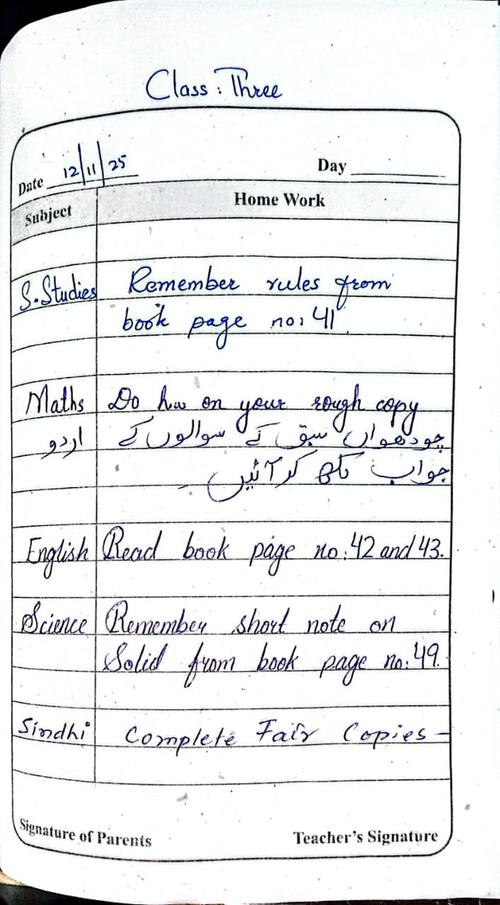 Class : Three
Date 12/11/25 Day
Subject Home Work
S.Studies Remember rules from
book page no: 41
Maths Do hw on your rough copy
اردو چودھواں سبق کے سوالوں کے
جواب لکھ کر آئیں ۔
English Read book page no: 42 and 43.
Science Remember short note on
Solid from book page no: 49.
Sindhi Complete Fair Copies -
Signature of Parents Teacher's Signature